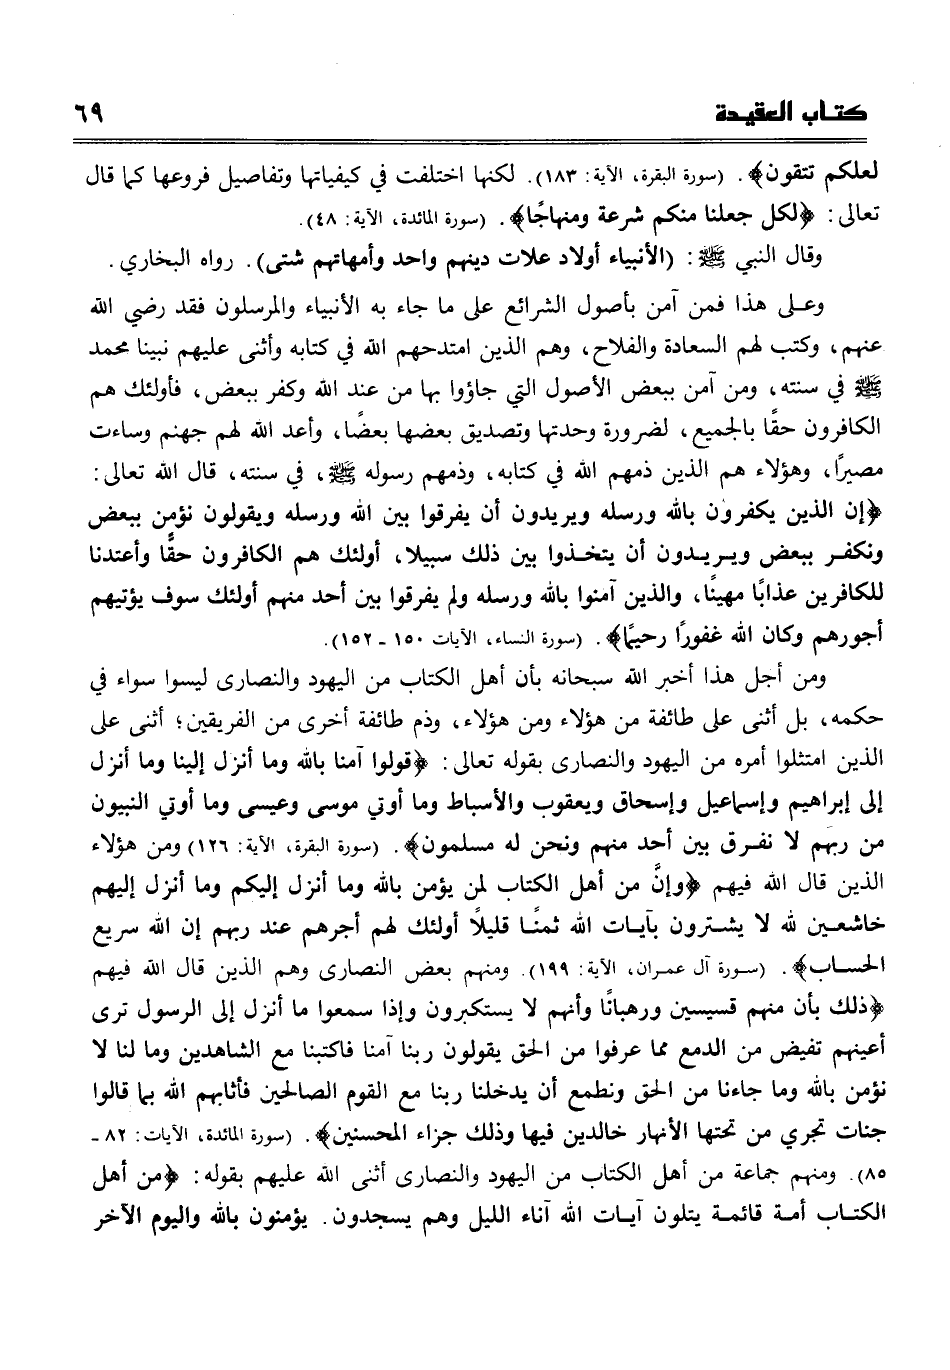 كتاب العقيدة ٦٩
لعلكم تتقون﴾. (سورة البقرة، الآية: ١٨٣). لكنها اختلفت في كيفياتها وتفاصيل فروعها كما قال
تعالى: ﴿لكل جعلنا منكم شرعة ومنهاجًا﴾. (سورة المائدة، الآية: ٤٨).
وقال النبي ﷺ: (الأنبياء أولاد علات دينهم واحد وأمهاتهم شتى). رواه البخاري.
وعلى هذا فمن آمن بأصول الشرائع على ما جاء به الأنبياء والمرسلون فقد رضي الله
عنهم، وكتب لهم السعادة والفلاح، وهم الذين امتدحهم الله في كتابه وأثنى عليهم نبينا محمد
ﷺ في سنته، ومن آمن ببعض الأصول التي جاؤوا بها من عند الله وكفر ببعض، فأولئك هم
الكافرون حقًا بالجميع، لضرورة وحدتها وتصديق بعضها بعضًا، وأعد الله لهم جهنم وساءت
مصيرًا، وهؤلاء هم الذين ذمهم الله في كتابه، وذمهم رسوله ﷺ، في سنته، قال الله تعالى:
﴿إن الذين يكفرون بالله ورسله ويريدون أن يفرقوا بين الله ورسله ويقولون نؤمن ببعض
ونكفر ببعض ويريدون أن يتخذوا بين ذلك سبيلا، أولئك هم الكافرون حقًّا وأعتدنا
للكافرين عذابًا مهينًا، والذين آمنوا بالله ورسله ولم يفرقوا بين أحد منهم أولئك سوف يؤتيهم
أجورهم وكان الله غفورًا رحيمًا﴾. (سورة النساء، الآيات ١٥٠ ـ ١٥٢).
ومن أجل هذا أخبر الله سبحانه بأن أهل الكتاب من اليهود والنصارى ليسوا سواء في
حكمه، بل أثنى على طائفة من هؤلاء ومن هؤلاء، وذم طائفة أخرى من الفريقين؛ أثنى على
الذين امتثلوا أمره من اليهود والنصارى بقوله تعالى: ﴿قولوا آمنا بالله وما أنزل إلينا وما أنزل
إلى إبراهيم وإسماعيل وإسحاق ويعقوب والأسباط وما أوتي موسى وعيسى وما أوتي النبيون
من ربهم لا نفرق بين أحد منهم ونحن له مسلمون﴾. (سورة البقرة، الآية: ١٢٦) ومن هؤلاء
الذين قال الله فيهم ﴿وإنَّ من أهل الكتاب لمن يؤمن بالله وما أنزل إليكم وما أنزل إليهم
خاشعين لله لا يشترون بآيات الله ثمنًا قليلاً أولئك لهم أجرهم عند ربهم إن الله سريع
الحساب﴾. (سورة آل عمران، الآية: ١٩٩). ومنهم بعض النصارى وهم الذين قال الله فيهم
﴿ذلك بأن منهم قسيسين ورهبانًا وأنهم لا يستكبرون وإذا سمعوا ما أنزل إلى الرسول ترى
أعينهم تفيض من الدمع مما عرفوا من الحق يقولون ربنا آمنا فاكتبنا مع الشاهدين وما لنا لا
نؤمن بالله وما جاءنا من الحق ونطمع أن يدخلنا ربنا مع القوم الصالحين فأثابهم الله بما قالوا
جنات تجري من تحتها الأنهار خالدين فيها وذلك جزاء المحسنين﴾. (سورة المائدة، الآيات: ٨٢ ـ
٨٥). ومنهم جماعة من أهل الكتاب من اليهود والنصارى أثنى الله عليهم بقوله: ﴿من أهل
الكتاب أمة قائمة يتلون آيات الله آناء الليل وهم يسجدون. يؤمنون بالله واليوم الآخر